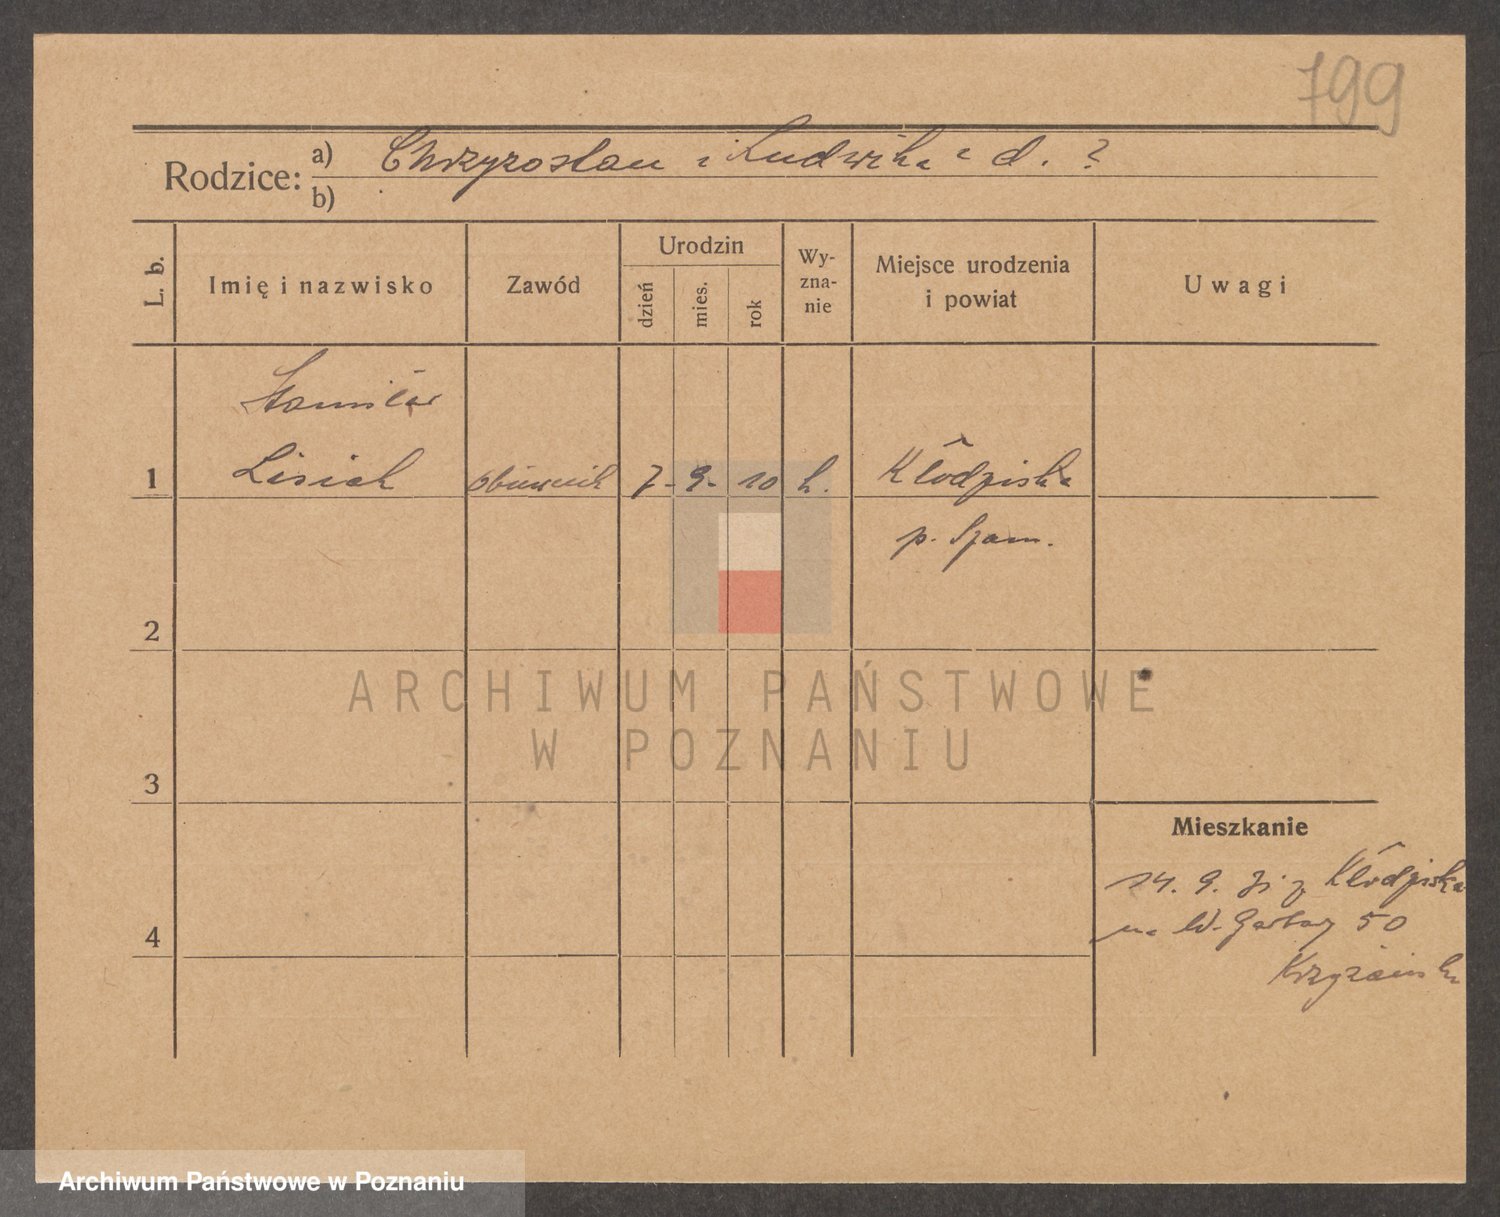 799
Rodzice: a) Chrzyzostan i Ludwika z d. ?
b)
L. b.
Imię i nazwisko
Zawód
Urodzin
dzień
mies.
rok
Wy-
zna-
nie
Miejsce urodzenia
i powiat
Uwagi
Stanisław
1 Lisiak obuwnik 7. 9. 10 k. Kłodziska
p. Szam.
2
3
4
Mieszkanie
14. 9. z Kłodziska
na W. Garbary 50
ARCHIWUM PAŃSTWOWE
W POZNANIU
Archiwum Państwowe w Poznaniu